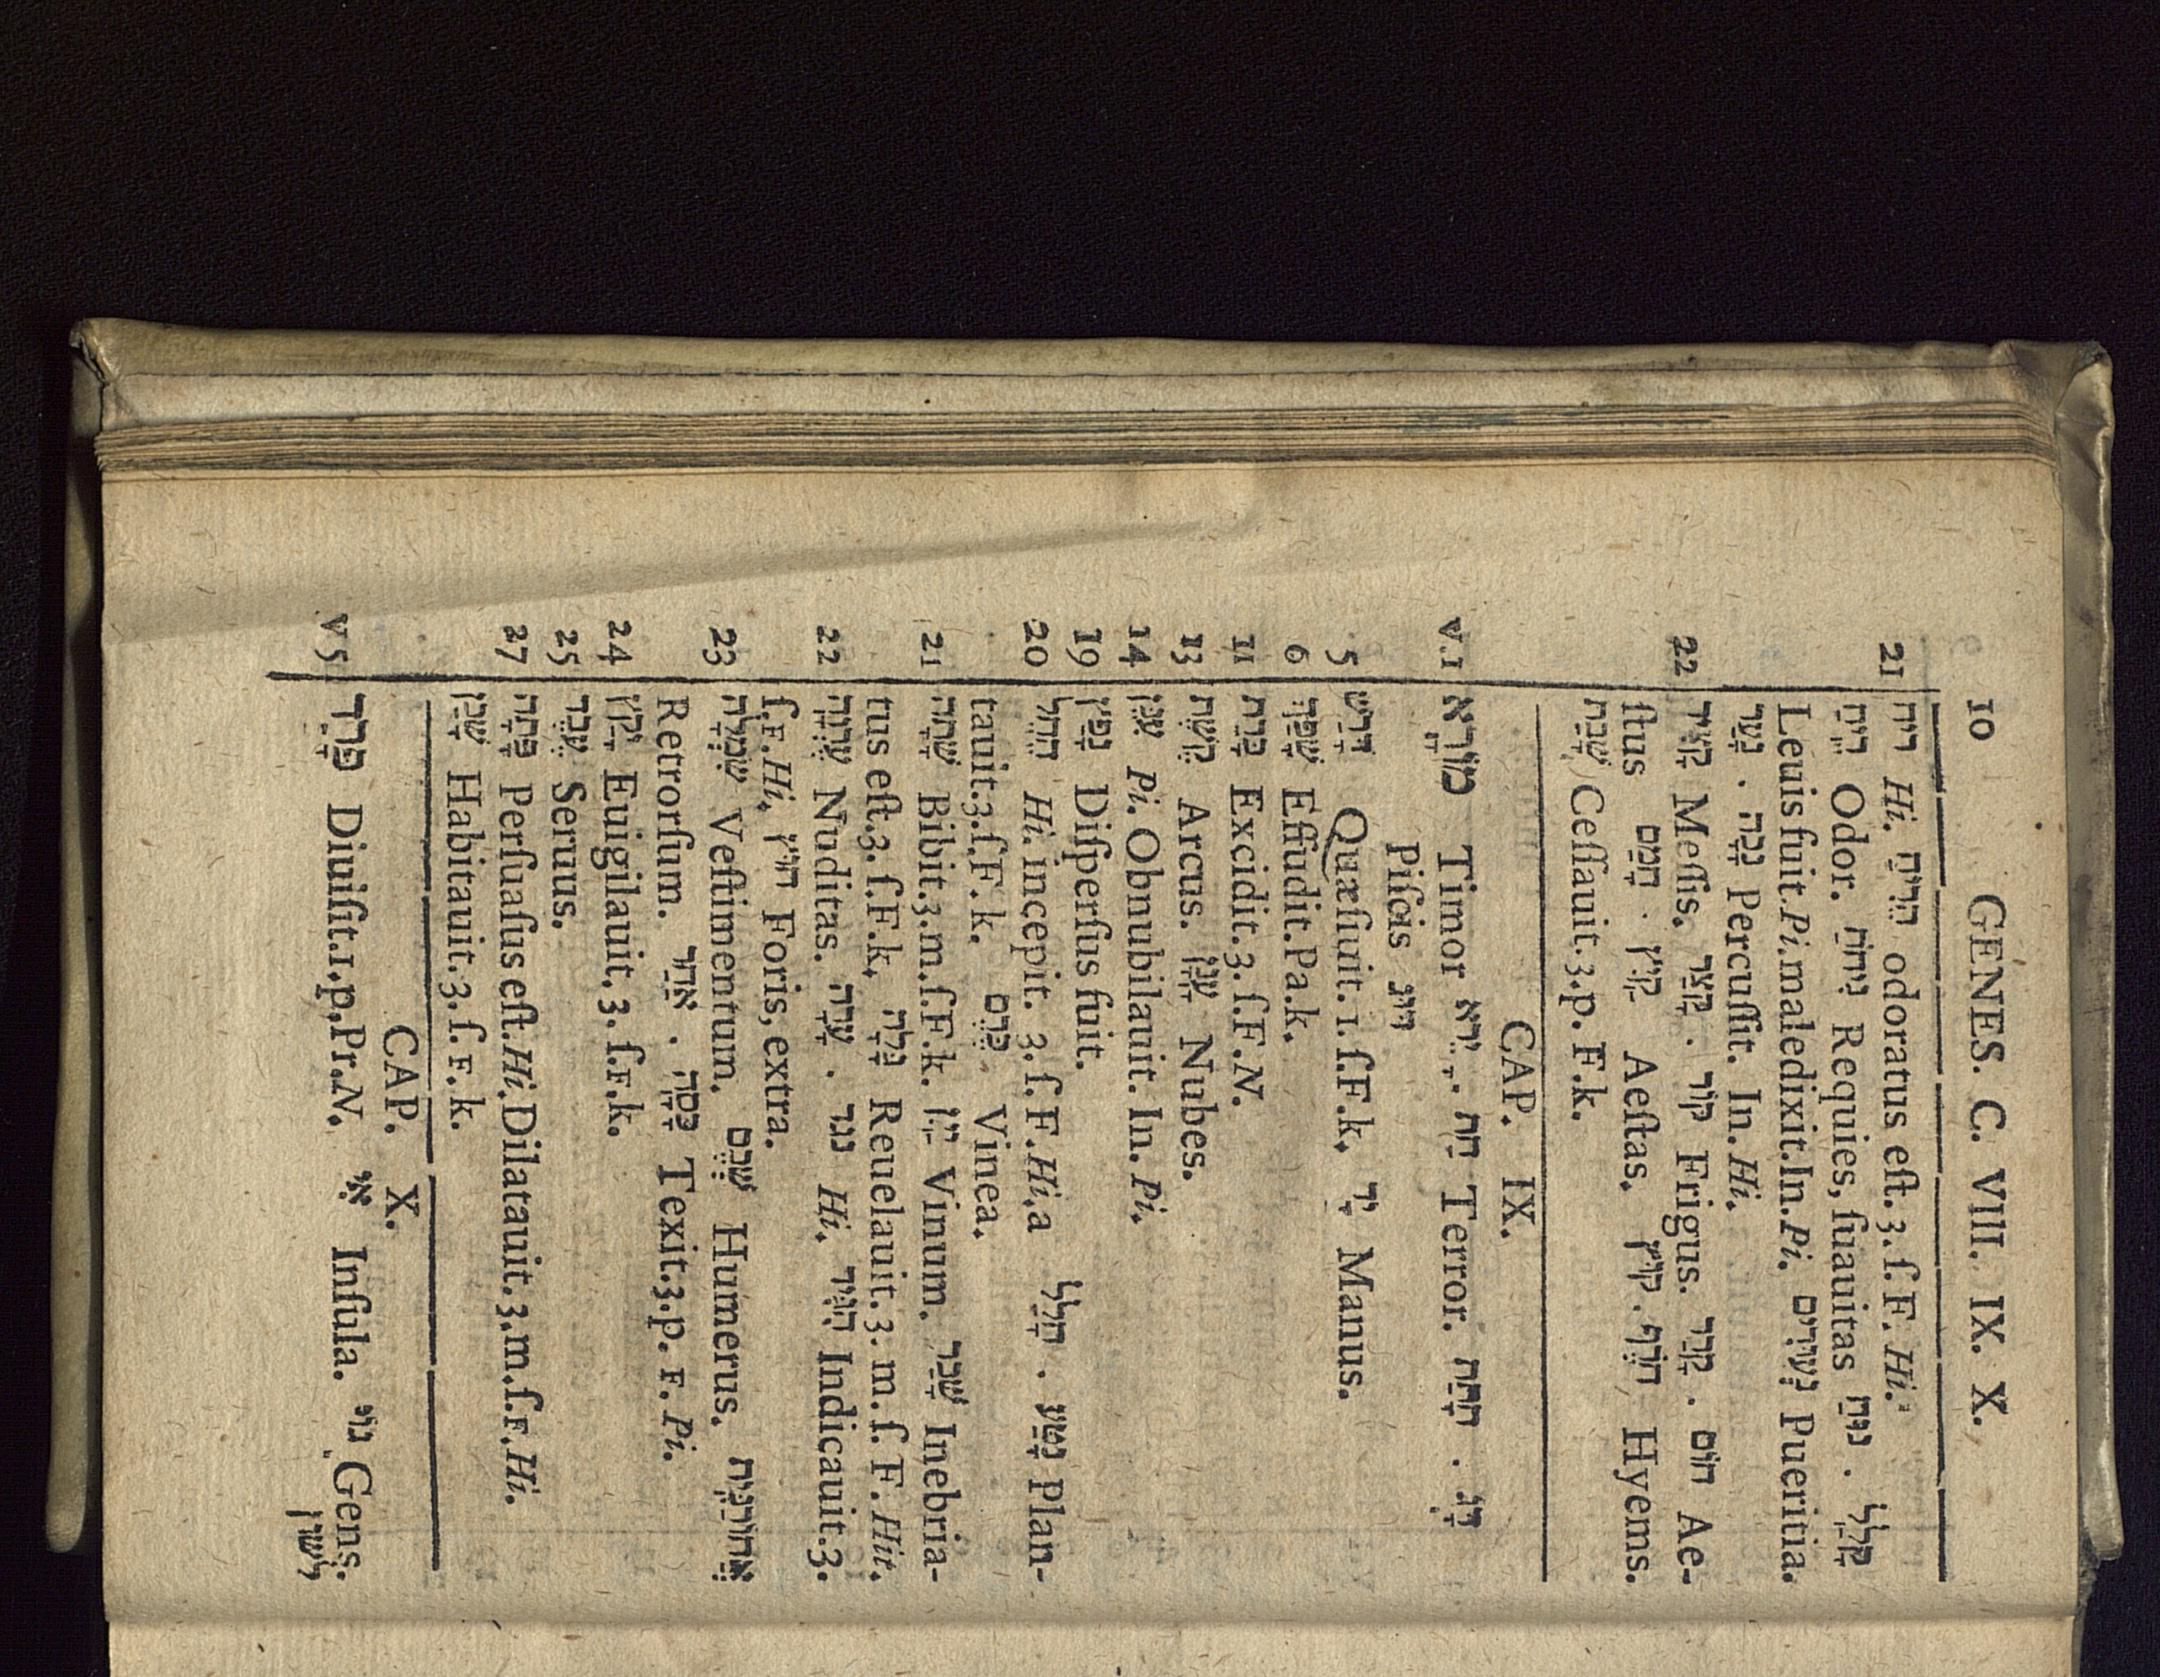 10 GENES. C. VIII. IX. X.
21 רִיחַ Hi. הֵרִיחַ odoratus eſt. 3. ſ. F. Hi.
רֵיחַ Odor. נִיחֹחַ Requies, ſuauitas נוּחַ . קָלַל
Leuis fuit. Pi. maledixit. In. Pi. נְעוּרִים Pueritia.
נָעַר . נָכָה Percuſſit. In. Hi.
22 קָצִיר Meſſis. קָצַר . קוֹר Frigus. קָרַר . חוֹם Ae-
ſtus חָמַם . קַיִץ Aeſtas. קוּץ . חוֹרֶף Hyems.
שָׁבַת Ceſſauit. 3. p. F. k.
CAP. IX.
v.1 מוֹרָא Timor יָרֵא . חַת Terror. חָתַת . דָּג
Piſcis דּוּג
5 דָּרַשׁ Quæſiuit. 1. ſ. F. k. יָד Manus.
6 שָׁפַךְ Effudit. Pa. k.
11 כָּרַת Excidit. 3. ſ. F. N.
13 קֶשֶׁת Arcus. עָנָן Nubes.
14 עָנַן Pi. Obnubilauit. In. Pi.
19 נָפַץ Diſperſus fuit.
20 הֵחֵל Hi. incepit. 3. ſ. F. Hi. a חָלַל . נָטַע Plan-
tauit. 3. ſ. F. k. כֶּרֶם Vinea.
21 שָׁתָה Bibit. 3. m. ſ. F. k. יַיִן Vinum. שָׁכַר Inebria-
tus eſt. 3. ſ. F. k. גָּלָה Reuelauit. 3. m. ſ. F. Hit.
22 עֶרְוָה Nuditas. עָרָה . נגד Hi. הִגִּיד Indicauit. 3.
ſ. F. Hi. חוּץ Foris, extra.
23 שִׂמְלָה Veſtimentum. שְׁכֶם Humerus. אֲחוֹרַנִּית
Retrorſum. אַחַר . כָּסָה Texit. 3. p. F. Pi.
24 יָקַץ Euigilauit. 3. ſ. F. k.
25 עֶבֶד Seruus.
27 פָּתָה Perſuaſus eſt. Hi. Dilatauit. 3. m. ſ. F. Hi.
שָׁכַן Habitauit. 3. ſ. F. k.
CAP. X.
v 5 פָּרַד Diuiſit. 1. p. Pr. N. אִי Inſula. גּוֹי Gens.
לָשׁוֹן